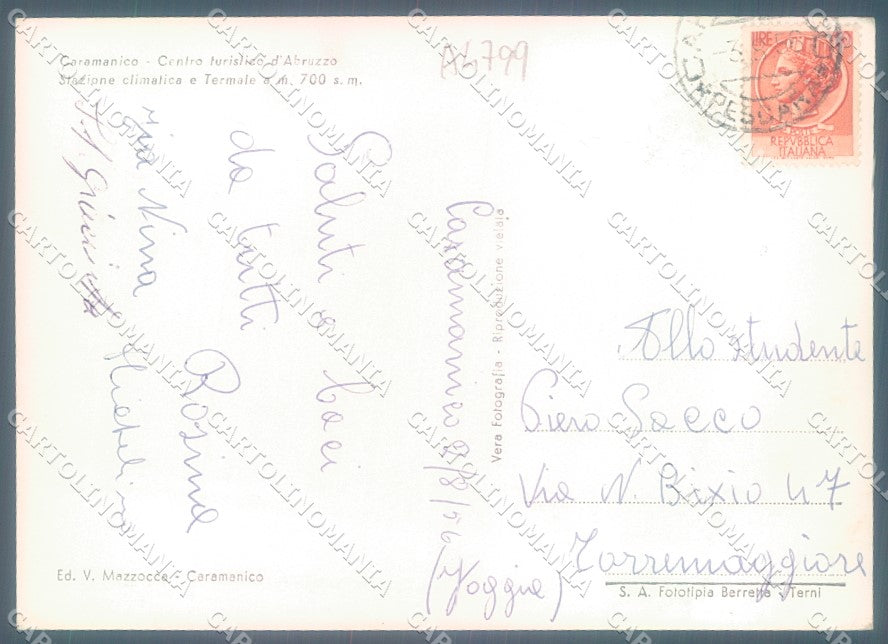 Caramanico - Centro turistico d'Abruzzo
Stazione climatica e Termale a m. 700 s.m.
AL799
LIRE
REPVBBLICA
ITALIANA
Saluti e baci
da tutti
Rosina
zia Nina
Caramanico 9/8/56
Vera Fotografia - Riproduzione vietata
Allo studente
Piero Sacco
Via N. Bixio 47
Torremaggiore
(Foggia)
Ed. V. Mazzocca - Caramanico
S. A. Fototipia Berretta - Terni
CARTOLINOMANIA